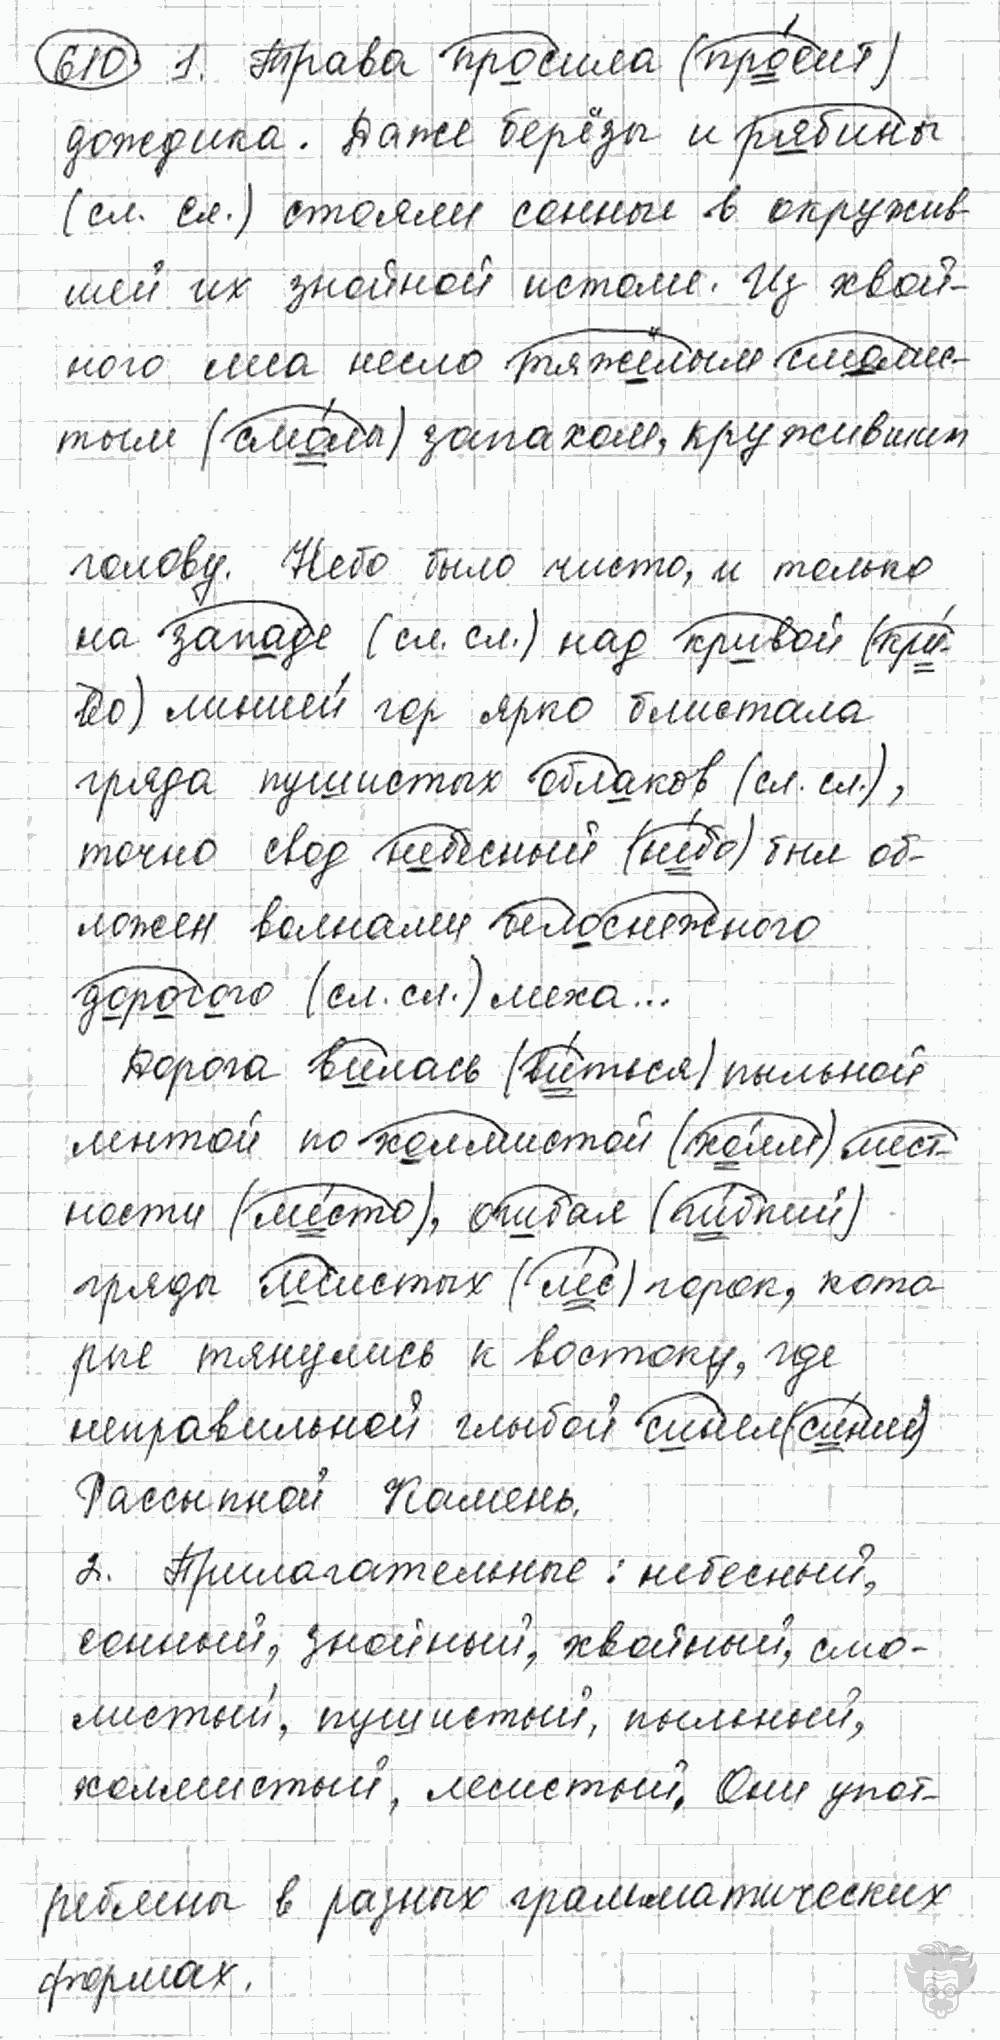 610. 1. Трава просила (просит)
дождика. Даже берёзы и рябины
(сл. сл.) стояли сонные в окружив-
шей их знойной истоме. Из хвой-
ного леса несло тяжёлым смолис-
тым (смолы) запахом, круживших
голову. Небо было чисто, и только
на западе (сл. сл.) над кривой (кри-
во) линией гор ярко блистала
гряда пушистых облаков (сл. сл.),
точно свод небесный (небо) был об-
ложен волнами белоснежного
дорогого (сл. сл.) меха...
Дорога вилась (виться) пыльной
лентой по холмистой (холм) мест-
ности (место), огибая (гибкий)
гряды лесистых (лес) горок, кото
рые тянулись к востоку, где
неправильной глыбой синел (синий)
Рассыпной Камень.
2. Прилагательные: небесный,
сонный, знойный, хвойный, смо-
листый, пушистый, пыльный,
холмистый, лесистый. Они упот-
реблены в разных грамматических
формах.